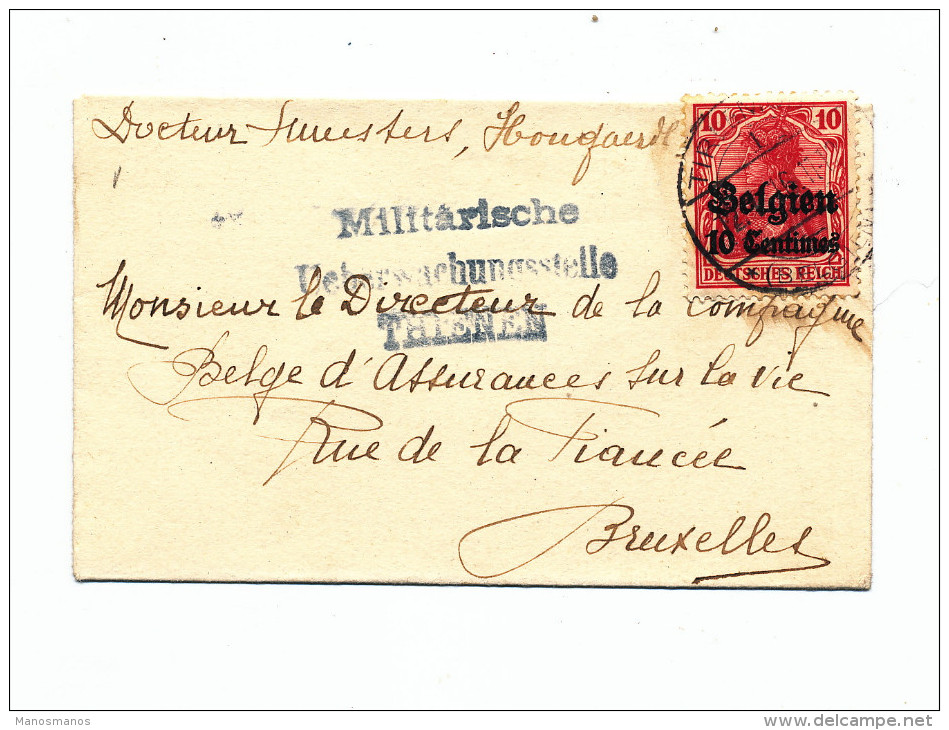 Docteur Smeesters, Hougaerde
10 10
Belgien
10 Centimes
DEUTSCHES REICH
TIR
Militärische
Ueberwachungsstelle
THIENEN
Monsieur le Directeur de la Compagnie
Belge d'Assurances sur la vie
Rue de la Fiancée
Bruxelles
Manosmanos
www.delcampe.net